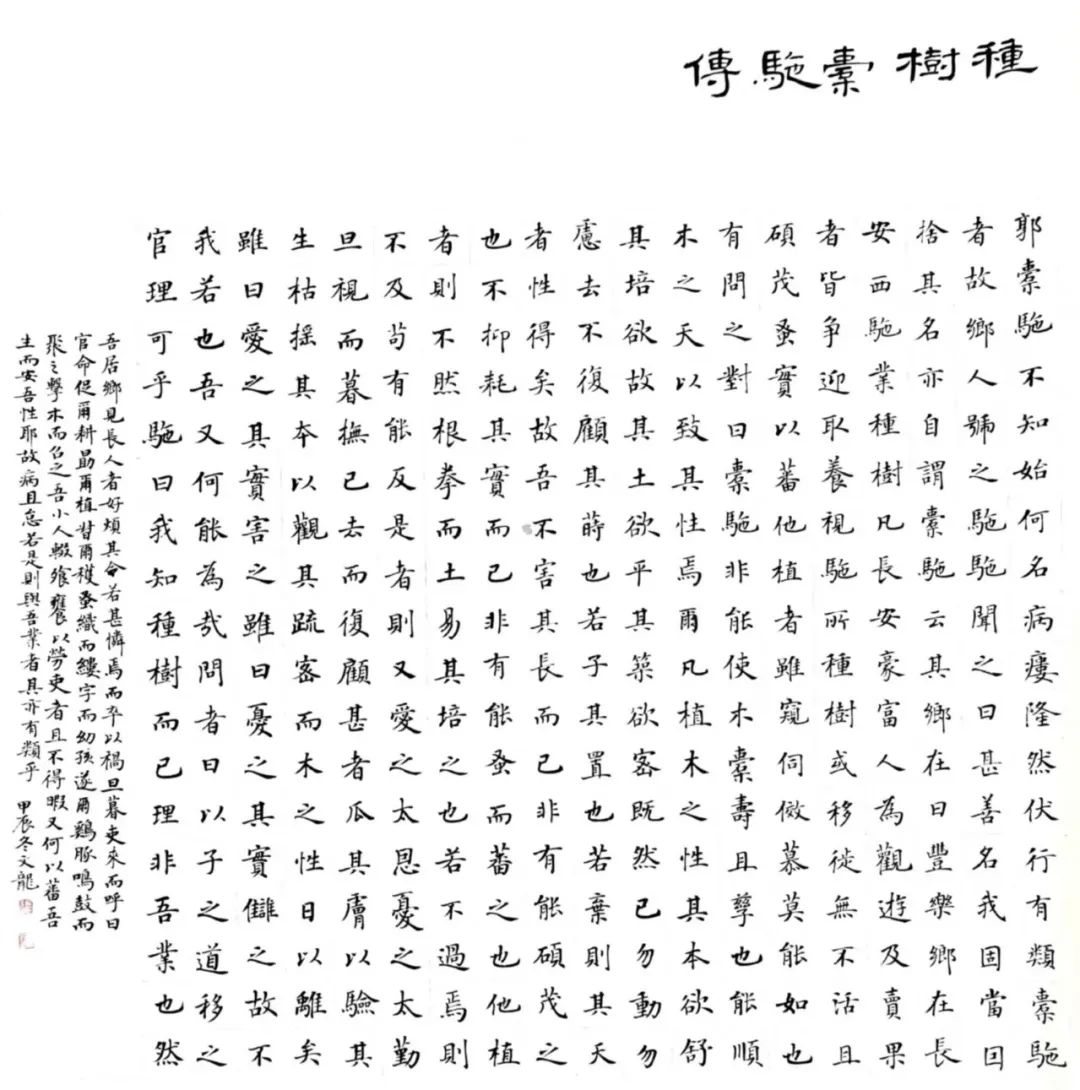 種樹橐駞傳
郭橐駞不知始何名病瘻隆然伏行有類橐駞
者故鄉人號之駞駞聞之曰甚善名我固當因
捨其名亦自謂橐駞云其鄉在曰豐樂鄉在長
安西駞業種樹凡長安豪富人為觀遊及賣果
者皆爭迎取養視駞所種樹或移徙無不活且
碩茂蚤實以蕃他植者雖窺伺傚慕莫能如也
有問之對曰橐駞非能使木橐壽且孳也能順
木之天以致其性焉爾凡植木之性其本欲舒
其培欲故其土欲平其築欲密既然已勿動勿
慮去不復顧其蒔也若子其置也若棄則其天
者性得矣故吾不害其長而已非有能碩茂之
也不抑耗其實而已非有能蚤而蕃之也他植
者則不然根拳而土易其培之也若不過焉則
不及苟有能反是者則又愛之太恩憂之太勤
旦視而暮撫已去而復顧甚者瓜其膚以驗其
生枯搖其本以觀其疏密而木之性日以離矣
雖曰愛之其實害之雖曰憂之其實讎之故不
我若也吾又何能為哉問者曰以子之道移之
官理可乎駞曰我知種樹而已理非吾業也然
吾居鄉見長人者好煩其命若甚憐焉而卒以禍旦暮吏來而呼曰
官命促爾耕勗爾植督爾穫蚤織而縷字而幼孩遂爾鷄豚鳴鼓而
聚之擊木而召之吾小人輟飧饔以勞吏者且不得暇又何以蕃吾
生而安吾性耶故病且怠若是則與吾業者其亦有類乎 甲辰冬文龍